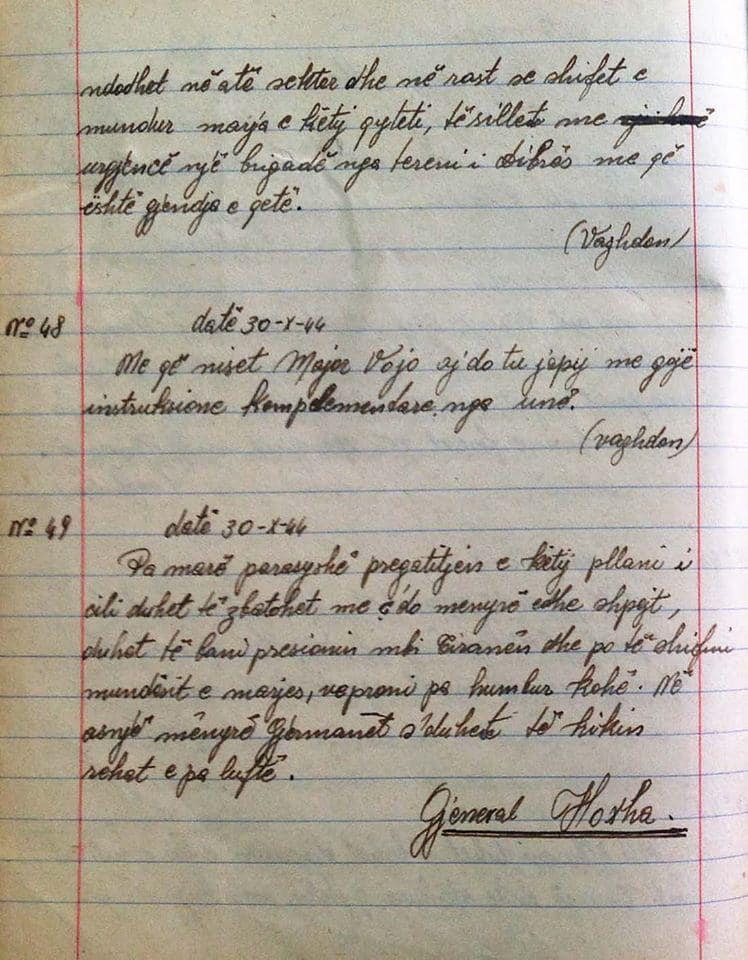 ndodhet në atë sektor dhe në rast se shifet e
mundur marja e këtij qyteti, të sillet me
urgjencë një brigadë nga tereni i Dibrës me që
është gjendja e qetë.
(Vazhdon)
Nº 48 datë 30-X-44
Me që niset Major Vojo aj do tu japij me gojë
instruksione komplementare nga unë.
(vazhdon)
Nº 49 datë 30-X-44
Pa marë parasyshë pregatitjen e këtij pllani i
cili duhet të zbatohet me çdo menyrë edhe shpejt,
duhet të bani presionin mbi Tiranën dhe po të shifni
mundësit e marjes, vaproni pa humbur kohë. Në
asnjë mënyrë Gjermanët s'duhet të hikin
rehat e pa luftë.
Gjeneral Hoxha.